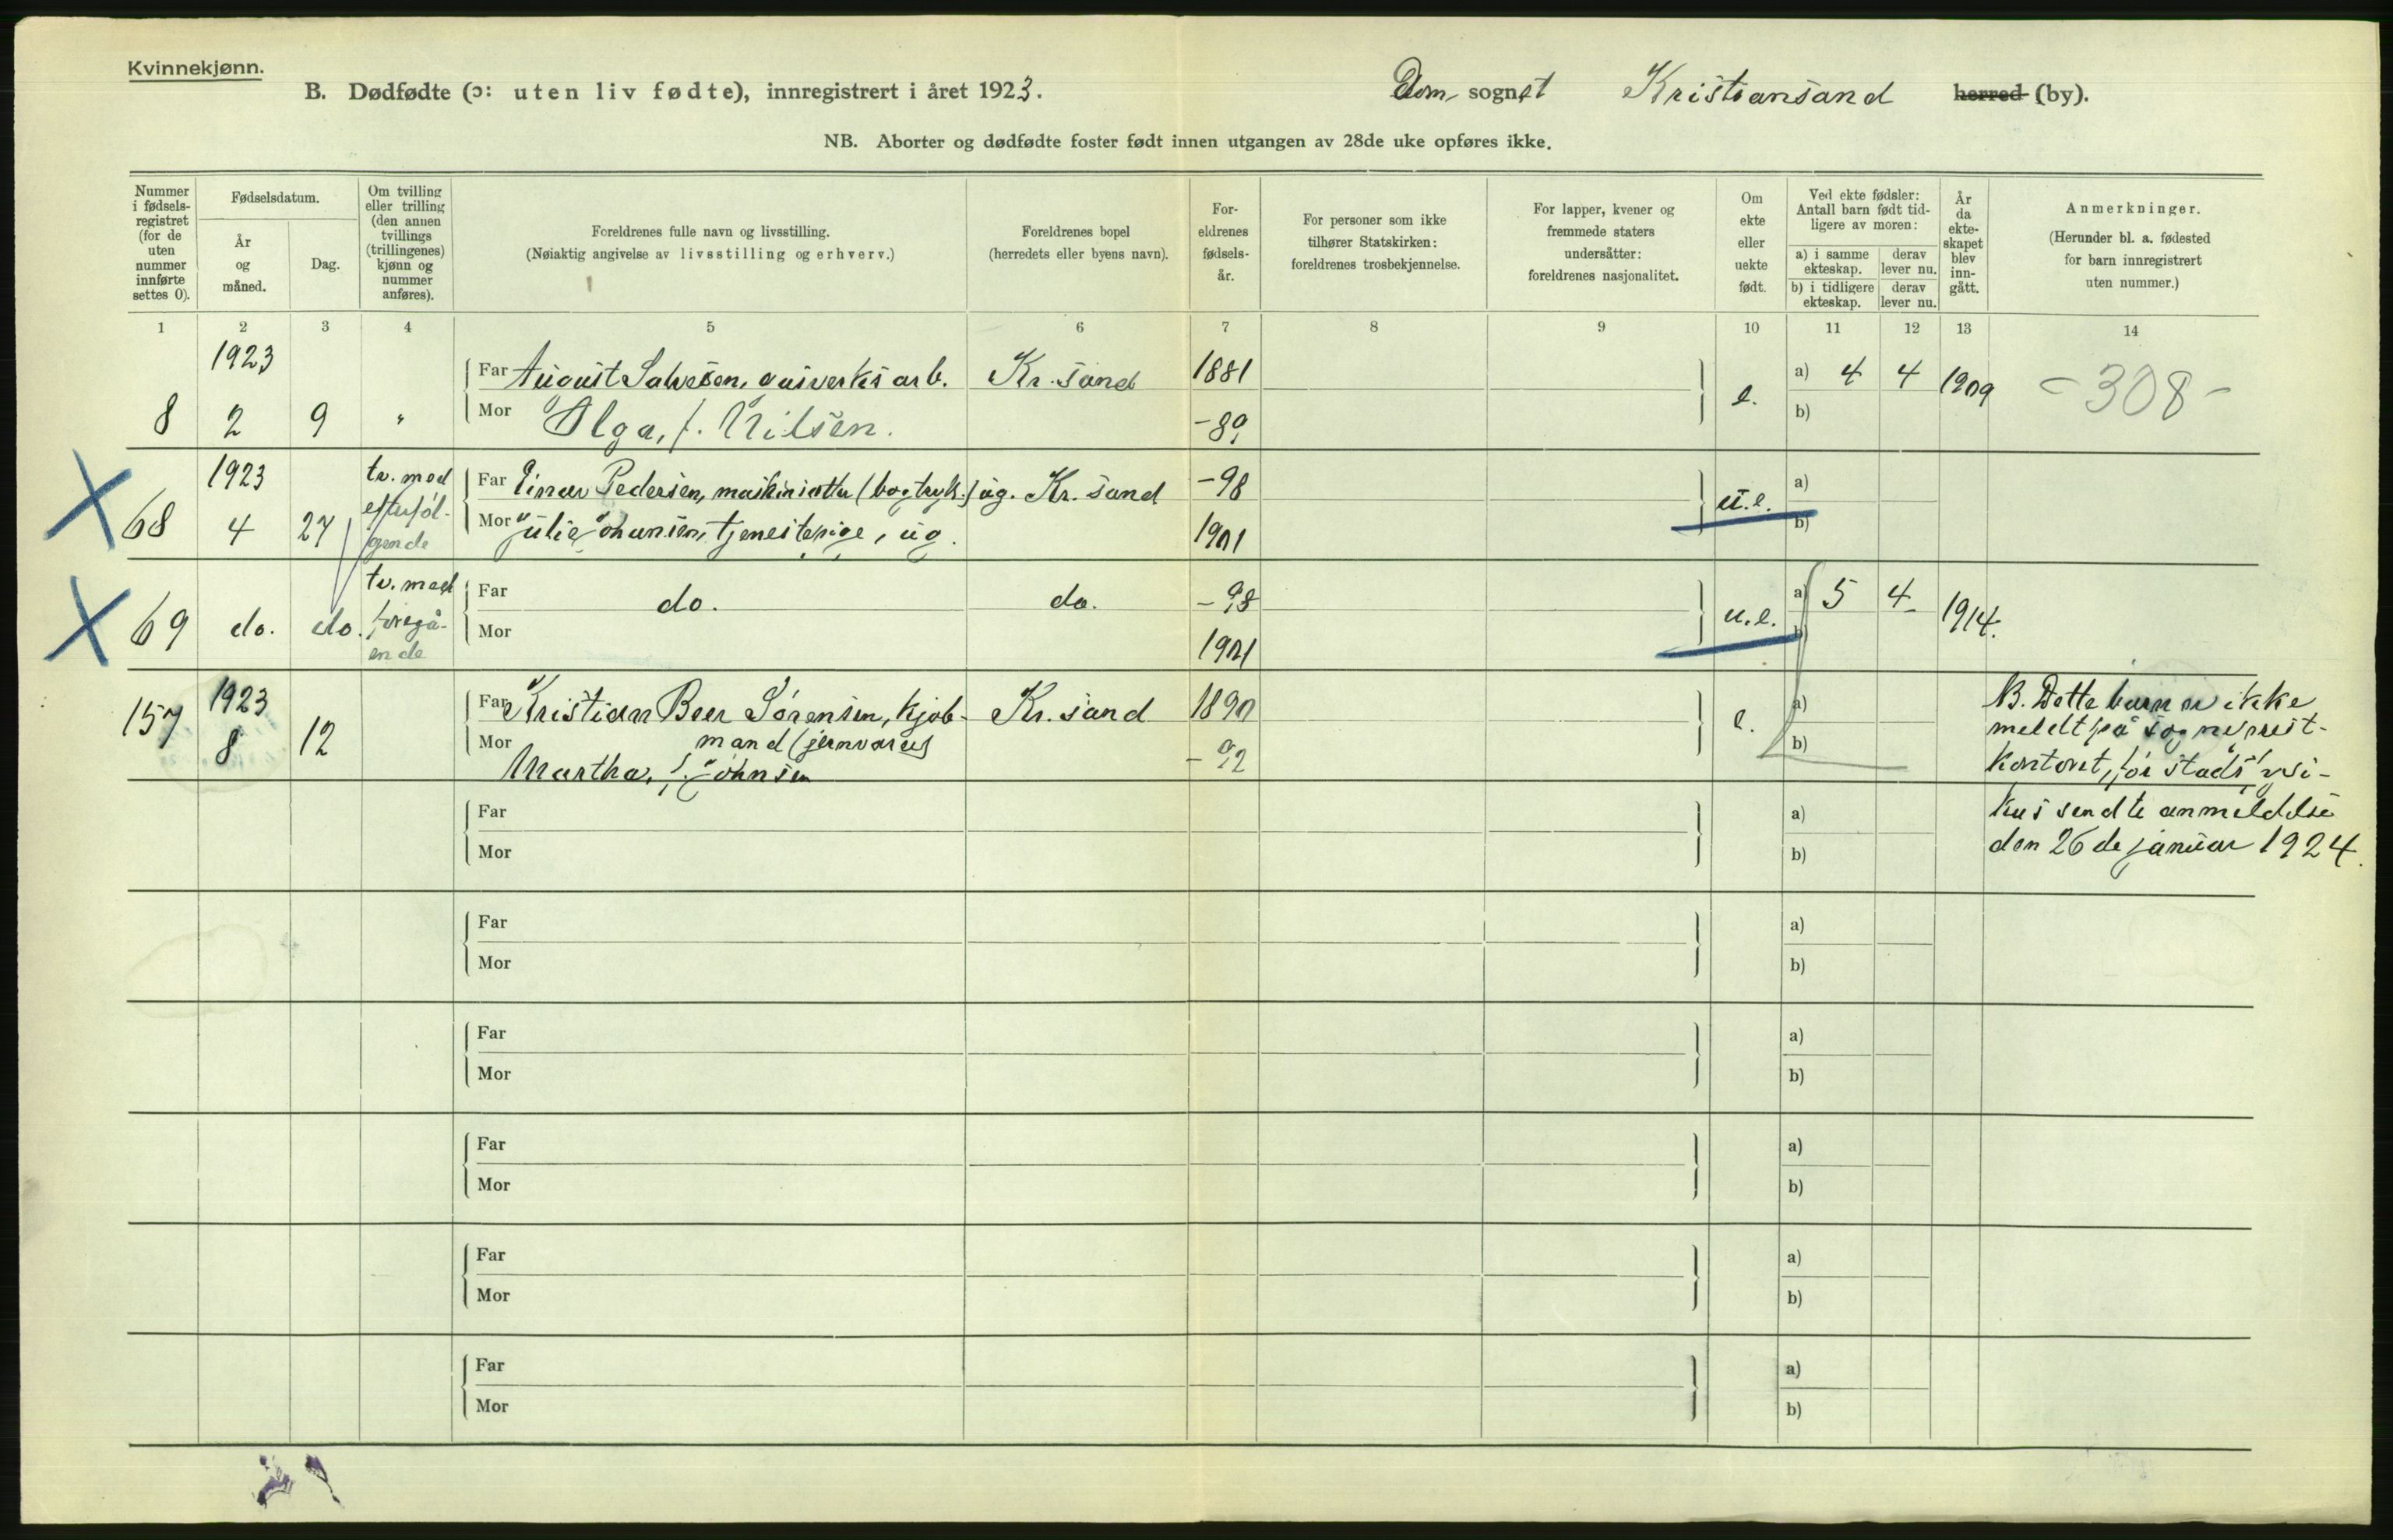 Kvinnekjønn.
B. Dødfødte (ɔ: uten liv fødte), innregistrert i året 1923.
Dom- sognet Kristiansand herred (by).
NB. Aborter og dødfødte foster født innen utgangen av 28de uke opføres ikke.
Nummer i fødsels-registret (for de uten nummer innførte settes 0).
Fødselsdatum.
År og måned.
Dag.
Om tvilling eller trilling (den annen tvillings (trillingenes) kjønn og nummer anføres).
Foreldrenes fulle navn og livsstilling.
(Nøiaktig angivelse av livsstilling og erhverv.)
Foreldrenes bopel
(herredets eller byens navn).
For-eldrenes fødsels-år.
For personer som ikke tilhører Statskirken: foreldrenes trosbekjennelse.
For lapper, kvener og fremmede staters undersåtter: foreldrenes nasjonalitet.
Om ekte eller uekte født.
Ved ekte fødsler: Antall barn født tid-ligere av moren:
a) i samme ekteskap. derav lever nu.
b) i tidligere ekteskap. derav lever nu.
År da ekte-skapet blev inn-gått.
Anmerkninger.
(Herunder bl. a. fødested for barn innregistrert uten nummer.)
1 2 3 4 5 6 7 8 9 10 11 12 13 14
1923
Far August Salvesen, gasverksarb. Kr.sand 1881 a) 4 4 1909
8 2 9 " Mor Olga, f. Nilsen. -89 e. b) -308-
1923 tv. med
Far Einar Pedersen, maskinsetter (bogtryk.) ug. Kr.sand -98 a)
68 4 27 efterføl-
gende
Mor Julie Johansen, tjenestepige, ug. 1901 u.e. b)
tv. med
Far do. do. -98 a) 5 4 1914.
69 do. do. foregå-
ende
Mor 1901 u.e. b)
157 1923 8 12
Far Kristian Beer Sørensen, kjøb- Kr.sand 1890 e. a)
mand (jernvarer)
Mor Martha, f. Johnsen -92 b)
NB. Dette barn er ikke
meldt på sogneprest-
kontoret, før stadsfysi-
kus sendte anmeldelse
den 26de januar 1924.
Far a)
Mor b)
Far a)
Mor b)
Far a)
Mor b)
Far a)
Mor b)
Far a)
Mor b)
Far a)
Mor b)